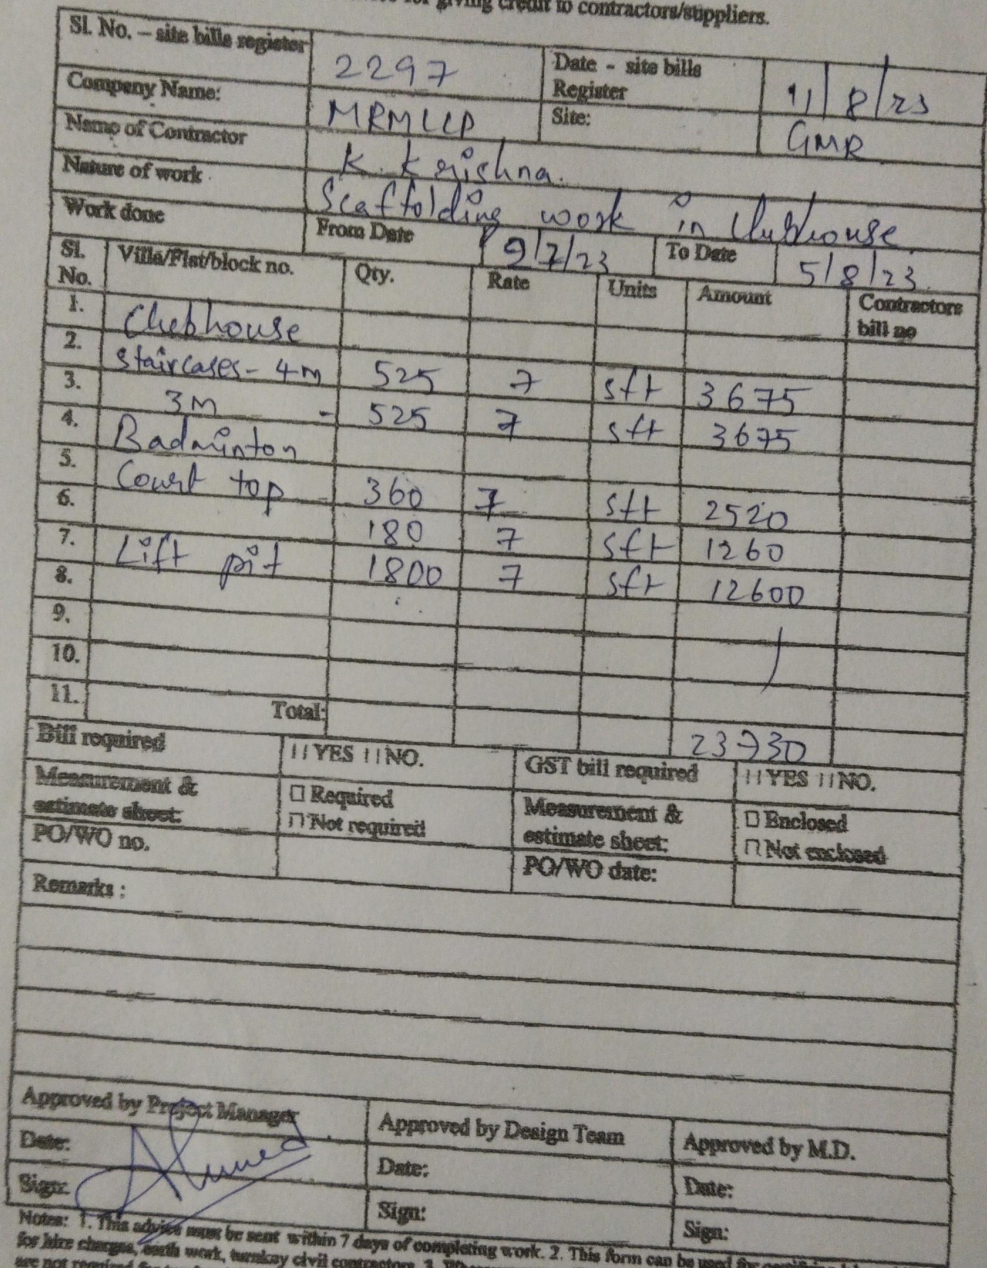 for giving credit to contractors/suppliers.
Sl. No. – site bills register 2297 Date - site bills Register 11/8/23
Company Name: MRMLLP Site: GMR
Name of Contractor K. Krishna.
Nature of work Scaffolding work in Clubhouse
Work done From Date 9/7/23 To Date 5/8/23
Sl. No. Villa/Flat/block no. Qty. Rate Units Amount Contractors bill no
1. Clubhouse
2. Staircases - 4m 525 7 sft 3675
3. 3M - 525 7 sft 3675
4. Badminton
5. Court top 360 7 sft 2520
6. 180 7 sft 1260
7. Lift pit 1800 7 sft 12600
8.
9.
10.
11.
Total: 23730
Bill required YES NO. GST bill required YES NO.
Measurement & estimate sheet: Required Not required Measurement & estimate sheet: Enclosed Not enclosed
PO/WO no. PO/WO date:
Remarks :
Approved by Project Manager Approved by Design Team Approved by M.D.
Date: Date: Date:
Sign: Ahmed Sign: Sign:
Notes: 1. This advice must be sent within 7 days of completing work. 2. This form can be used for
for hire charges, earth work, turnkay civil contractors. 3.
are not required